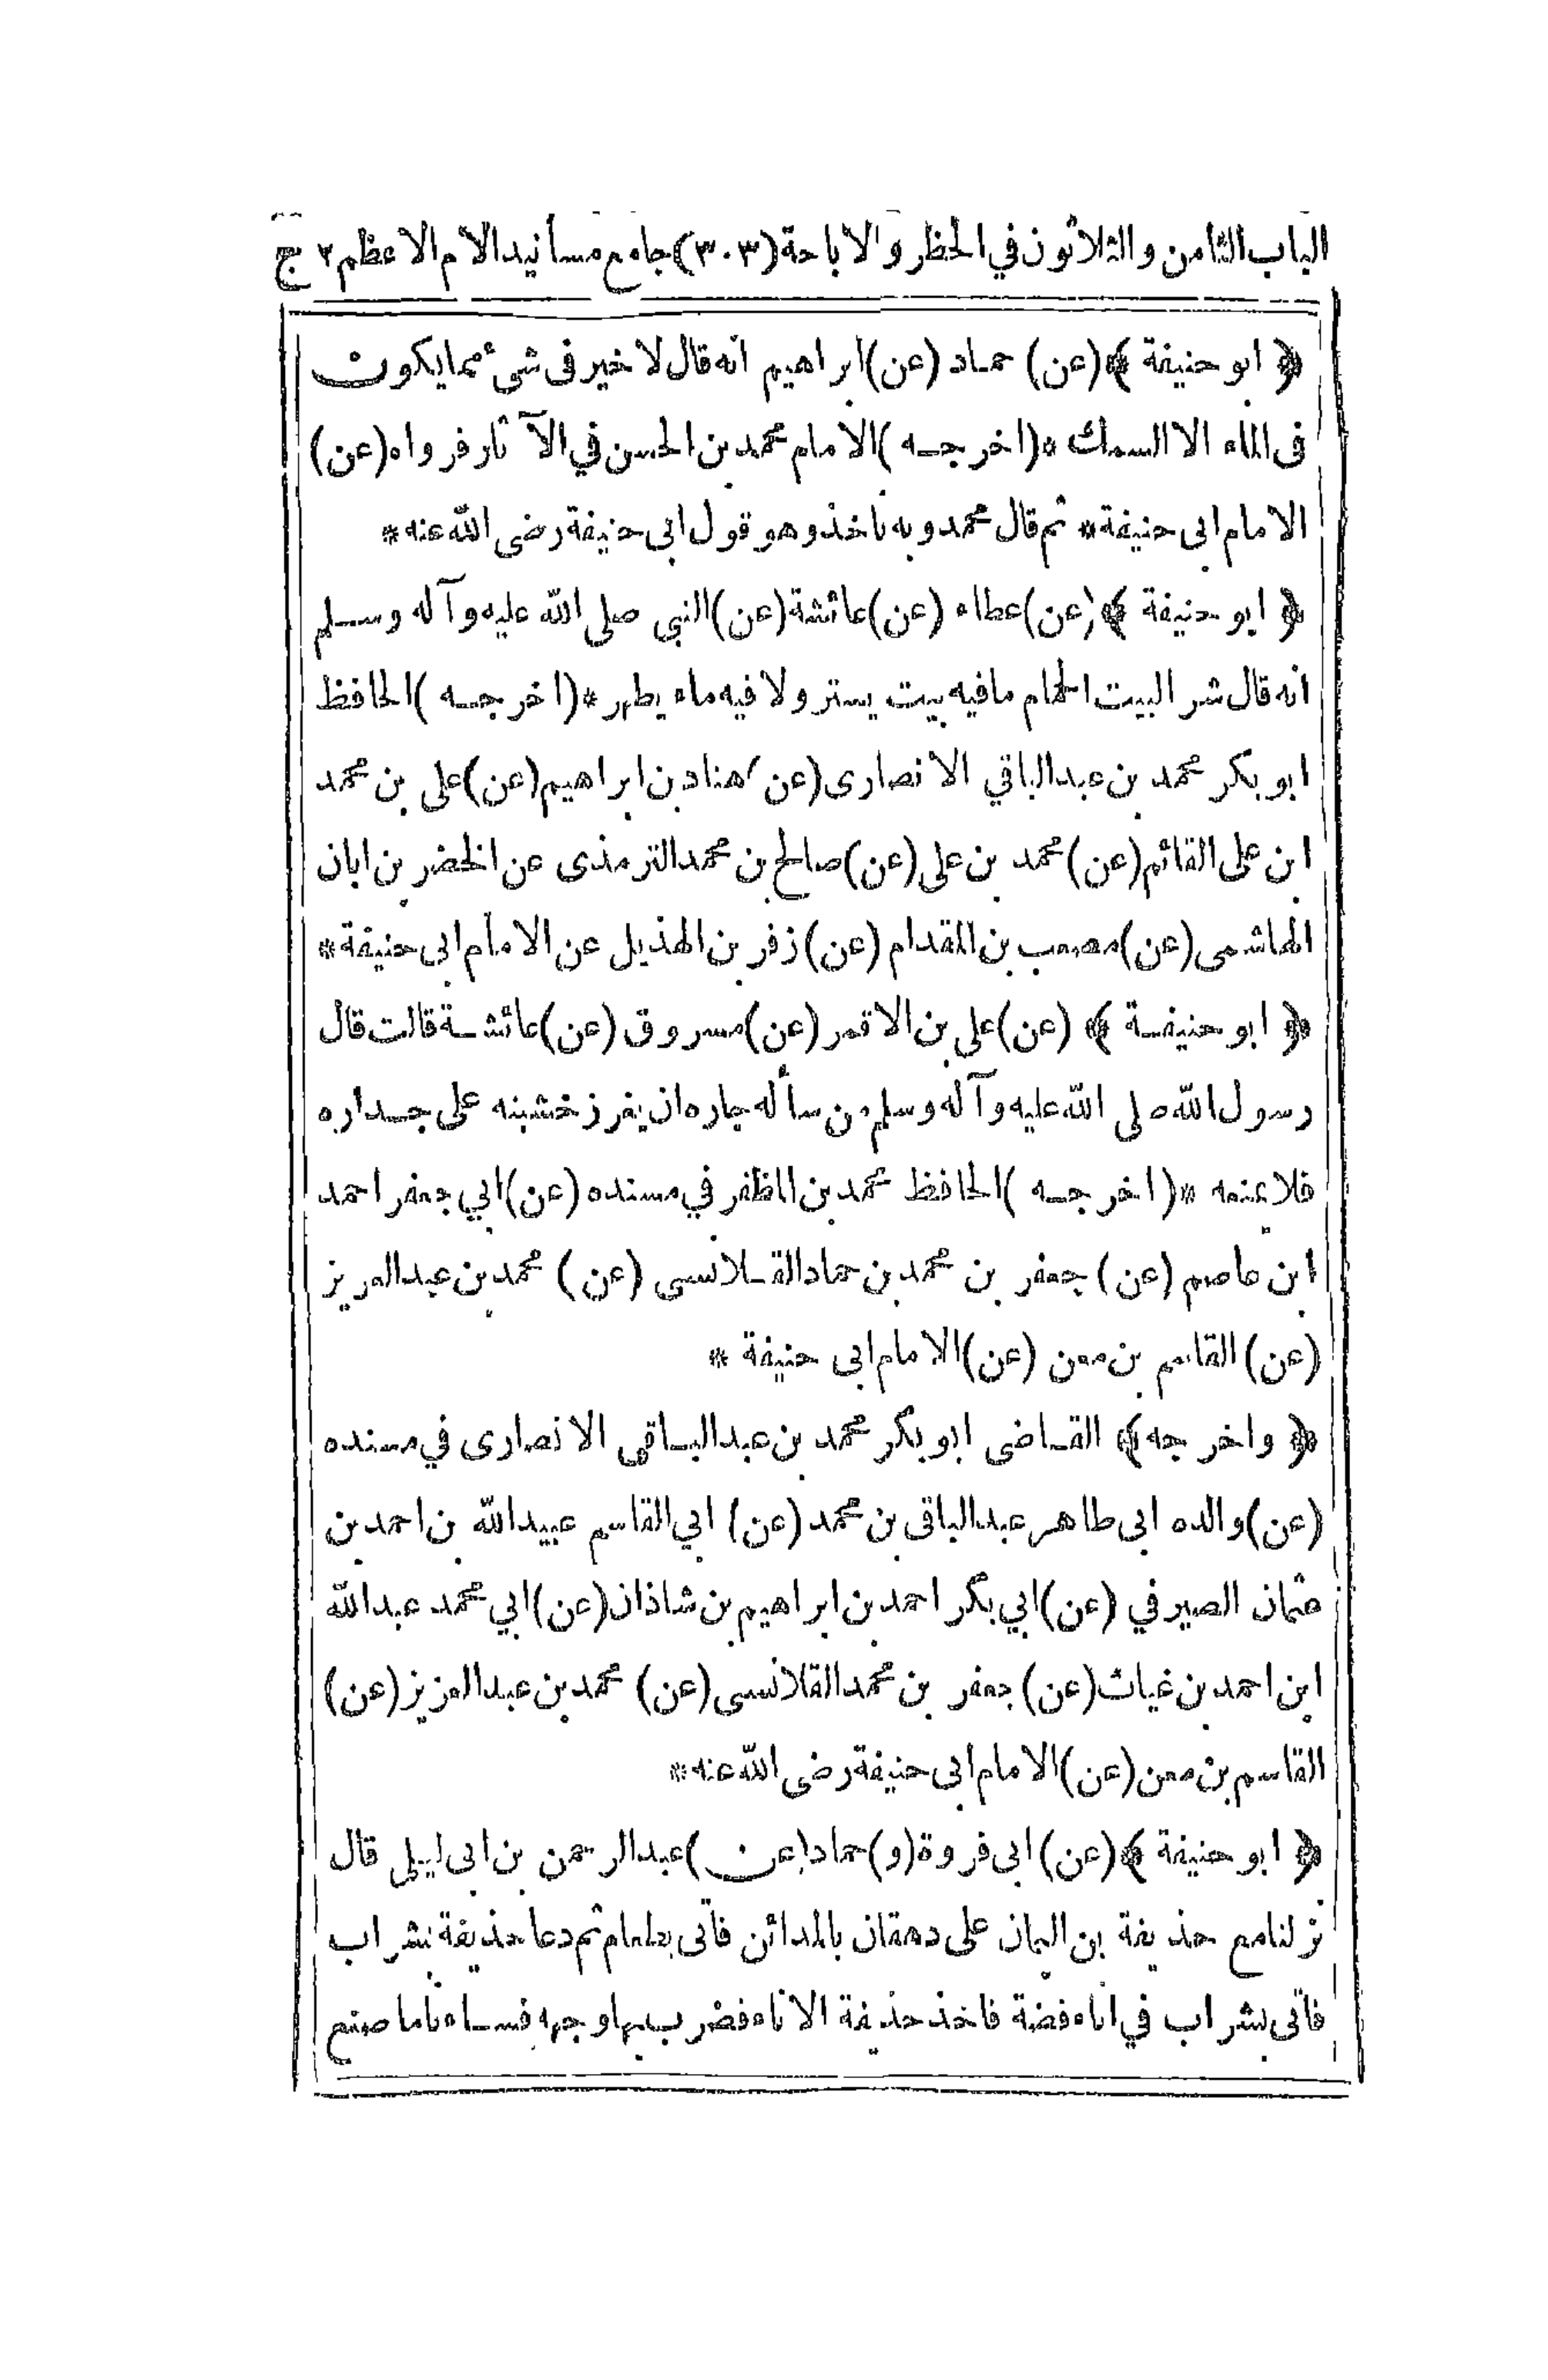 الباب الثامن والثلاثون في الحظر والاباحة (٣٠٣) جامع مسانيد الامام الاعظم ٢ ج
﴿ ابو حنيفة ﴾ (عن) حماد (عن) ابراهيم انه قال لا خير فى شئ مما يكون
فى الماء الا السمك * (اخرجه) الامام محمد بن الحسن في الآثار فرواه (عن)
الامام ابى حنيفة * ثم قال محمد وبه ناخذ وهو قول ابى حنيفة رضى الله عنه *
﴿ ابو حنيفة ﴾ (عن) عطاء (عن) عائشة (عن) النبي صلى الله عليه وآله وسلم
انه قال شر البيت الحمام مافيه بيت يستر ولا فيه ماء يطهر * (اخرجه) الحافظ
ابو بكر محمد بن عبد الباقي الانصارى (عن) هناد بن ابراهيم (عن) على بن محمد
ابن على القائم (عن) محمد بن على (عن) صالح بن محمد الترمذى عن الخضر بن ابان
الهاشمى (عن) مصعب بن المقدام (عن) زفر بن الهذيل عن الامام ابى حنيفة *
﴿ ابو حنيفة ﴾ (عن) على بن الاقمر (عن) مسروق (عن) عائشة قالت قال
رسول الله صلى الله عليه وآله وسلم من سأله جاره ان يغرز خشبته على جداره
فلا يمنعه * (اخرجه) الحافظ محمد بن المظفر في مسنده (عن) ابي جعفر احمد
ابن عاصم (عن) جعفر بن محمد بن حماد القلانسى (عن) محمد بن عبد العزيز
(عن) القاسم بن معن (عن) الامام ابى حنيفة *
﴿ واخرجه ﴾ القاضى ابو بكر محمد بن عبد الباقى الانصارى في مسنده
(عن) والده ابى طاهر عبد الباقى بن محمد (عن) ابي القاسم عبيد الله بن احمد بن
عثمان الصيرفي (عن) ابي بكر احمد بن ابراهيم بن شاذان (عن) ابي محمد عبد الله
ابن احمد بن غياث (عن) جعفر بن محمد القلانسى (عن) محمد بن عبد العزيز (عن)
القاسم بن معن (عن) الامام ابى حنيفة رضى الله عنه *
﴿ ابو حنيفة ﴾ (عن) ابى فروة (و) حماد (عن) عبد الرحمن بن ابى ليلى قال
نزلنا مع حذيفة بن اليمان على دهقان بالمدائن فأتى بطعام ثم دعا حذيفة بشراب
فأتى بشراب في اناء فضة فاخذ حذيفة الاناء فضرب بها وجهه فساءنا ما صنع